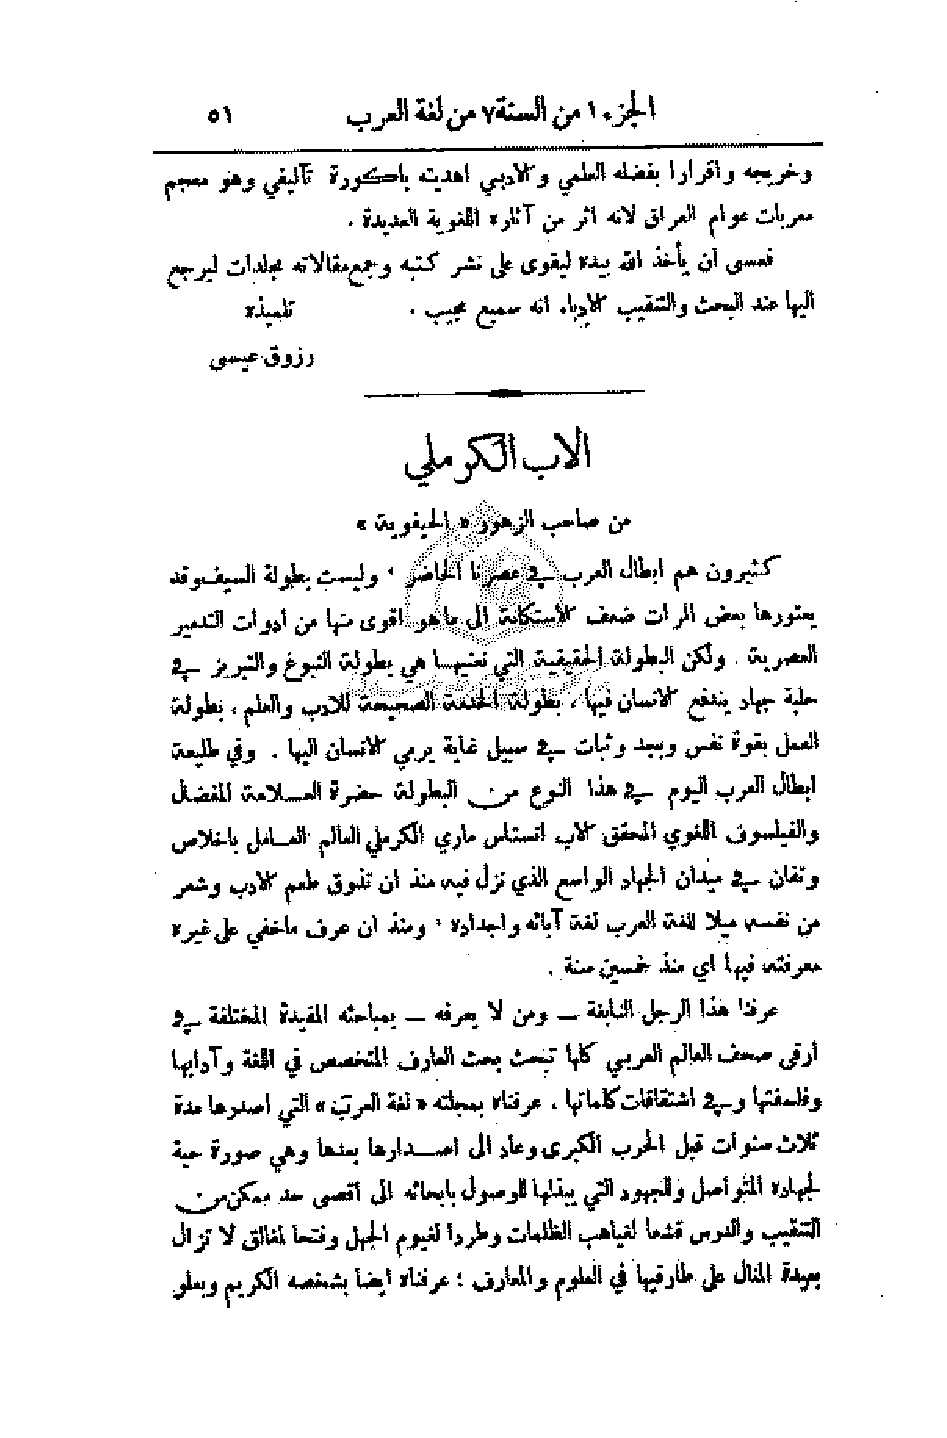 الجزء ١ من السنة ٧ من لغة العرب ٥١
وخريجه واقرارا بفضله العلمي والادبي اهديته باكورة تآليفي وهو معجم
معربات عوام العراق لانه اثر من آثاره اللغوية العديدة .
فعسى ان يأخذ الله بيده ليقوى على نشر كتبه وجمع مقالاته بمجلدات ليرجع
اليها عند البحث والتنقيب الادباء انه سميع مجيب . تلميذه
رزوق عيسى
الاب الكرملي
من صاحب الزهور « الحيفوية »
كثيرون هم ابطال العرب في عصرنا الحاضر ، وليست بطولة السيف وقد
يعتورها بعض المرات ضعف الاستكانة الى ما هو اقوى منها من ادوات التدمير
العصرية . ولكن البطولة الحقيقية التي نعنيها هي بطولة النبوغ والتبريز في
حلبة جهاد ينتفع الانسان فيها ، بطولة الخدمة الصحيحة للادب والعلم ، بطولة
العمل بقوة نفس وبجد وثبات في سبيل غاية يرمي الانسان اليها . وفي طليعة
ابطال العرب اليوم في هذا النوع من البطولة حضرة العلامة المفضال
والفيلسوف اللغوي المحقق الاب انستاس ماري الكرملي العالم العامل باخلاص
وتفان في ميدان الجهاد الواسع الذي نزل فيه منذ ان تذوق طعم الادب وشعر
من نفسه ميلا للغة العرب لغة آبائه واجداده ، ومنذ ان عرف ما خفي على غيره
معرفته فيها اي منذ خمسين سنة .
عرفنا هذا الرجل النابغة — ومن لا يعرفه — بمباحثه المفيدة المختلفة في
ارقى صحف العالم العربي كلها تبحث بحث العارف المتخصص في اللغة وآدابها
وفلسفتها وفي اشتقاقات كلماتها . عرفناه بمجلته « لغة العرب » التي اصدرها مدة
ثلاث سنوات قبل الحرب الكبرى وعاد الى اصدارها بعدها وهي صورة حية
لجهاده المتواصل وللجهود التي يبذلها للوصول بابحاثه الى أقصى حد ممكن من
التنقيب والدرس قشعا لغياهب الظلمات وطردا لغيوم الجهل وفتحا لمغالق لا تزال
بعيدة المنال على طارقيها في العلوم والمعارف ؛ عرفناه ايضا بشخصه الكريم وبعلو